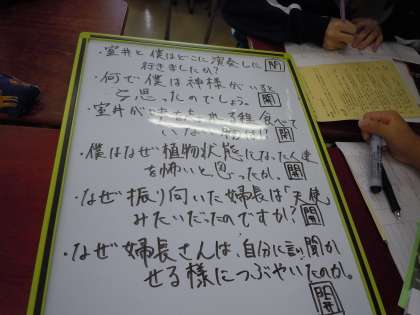 ・室井と僕はどこに演奏しに 開
行きましたか?
・何で僕は神様がいると
思ったのでしょう。 開
・室井が 食べて
いない 物は!? 開
・僕はなぜ植物状態になった人達
を怖いと思ったか。 開
・なぜ振り向いた婦長は「天使
みたいだったのですか? 開
・なぜ婦長さんは、自分に言い聞か
せる様につぶやいたのか。
開